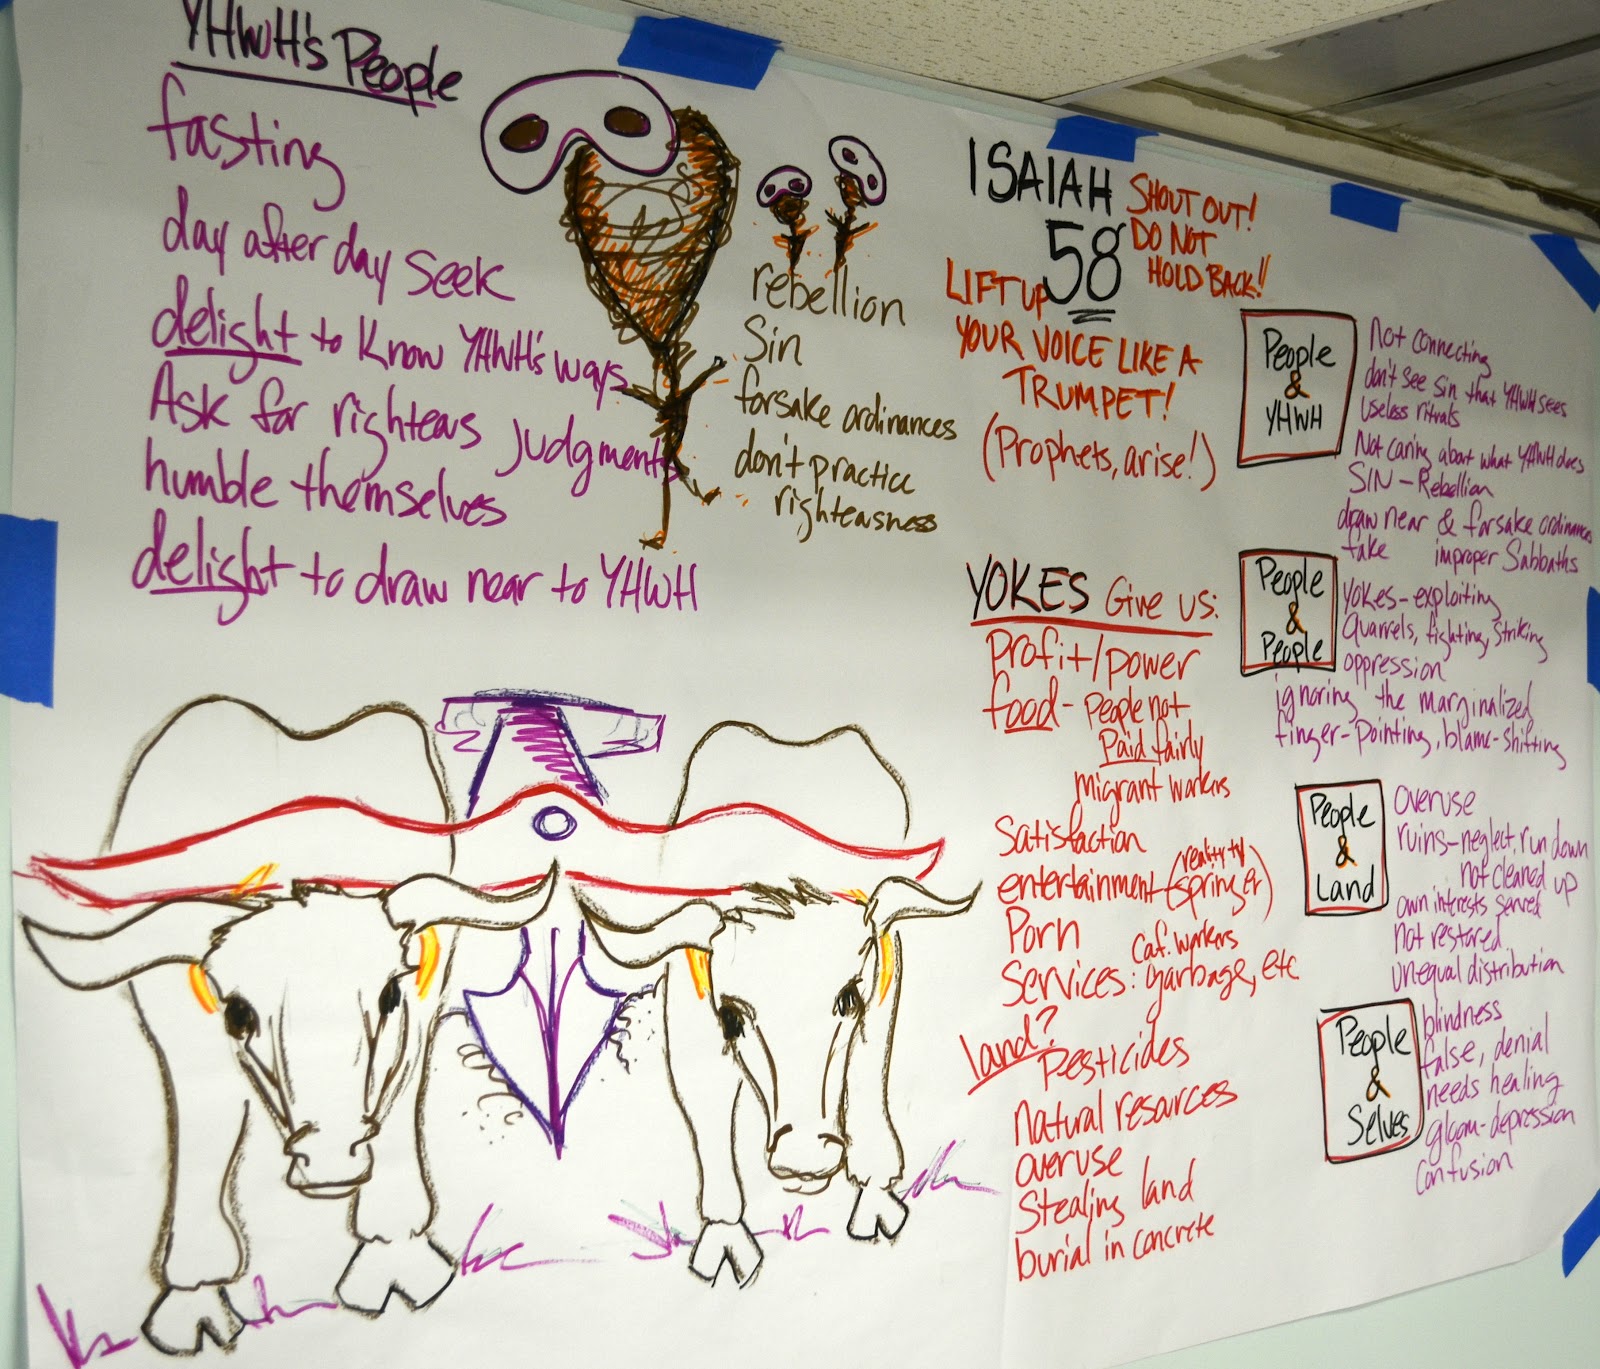 YHWH's People
fasting
day after day seek
delight to know YHWH's ways
Ask for righteous judgments
humble themselves
delight to draw near to YHWH
rebellion
Sin
forsake ordinances
don't practice
righteousness
ISAIAH
58
SHOUT OUT!
DO NOT
HOLD BACK!!
LIFT UP
YOUR VOICE LIKE A
TRUMPET!
(Prophets, arise!)
YOKES Give us:
Profit/power
food - People not
Paid fairly
migrant workers
Satisfaction
entertainment (reality tv
springer)
Porn
Caf. workers
Services: garbage, etc
land?
Pesticides
Natural resources
overuse
Stealing land
burial in concrete
People
&
YHWH
Not connecting
don't see sin that YHWH sees
useless rituals
Not caring about what YHWH does
SIN - Rebellion
draw near & forsake ordinances
fake improper Sabbaths
People
&
People
Yokes - exploiting
Quarrels, fighting, striking
oppression
ignoring the marginalized
finger-pointing, blame-shifting
People
&
Land
overuse
ruins - neglect, run down
not cleaned up
own interests served
not restored
unequal distribution
People
&
Selves
blindness
false, denial
needs healing
gloom - depression
confusion